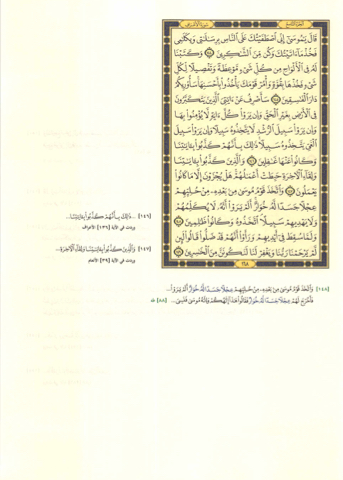 سورة الأعراف
الجزء التاسع
قَالَ يَٰمُوسَىٰٓ إِنِّى ٱصْطَفَيْتُكَ عَلَى ٱلنَّاسِ بِرِسَٰلَٰتِى وَبِكَلَٰمِى
فَخُذْ مَآ ءَاتَيْتُكَ وَكُن مِّنَ ٱلشَّٰكِرِينَ ١٤٤ وَكَتَبْنَا
لَهُۥ فِى ٱلْأَلْوَاحِ مِن كُلِّ شَىْءٍ مَّوْعِظَةً وَتَفْصِيلًا لِّكُلِّ
شَىْءٍ فَخُذْهَا بِقُوَّةٍ وَأْمُرْ قَوْمَكَ يَأْخُذُوا۟ بِأَحْسَنِهَا سَأُو۟رِيكُمْ
دَارَ ٱلْفَٰسِقِينَ ١٤٥ سَأَصْرِفُ عَنْ ءَايَٰتِىَ ٱلَّذِينَ يَتَكَبَّرُونَ
فِى ٱلْأَرْضِ بِغَيْرِ ٱلْحَقِّ وَإِن يَرَوْا۟ كُلَّ ءَايَةٍ لَّا يُؤْمِنُوا۟ بِهَا
وَإِن يَرَوْا۟ سَبِيلَ ٱلرُّشْدِ لَا يَتَّخِذُوهُ سَبِيلًا وَإِن يَرَوْا۟ سَبِيلَ
ٱلْغَىِّ يَتَّخِذُوهُ سَبِيلًا ذَٰلِكَ بِأَنَّهُمْ كَذَّبُوا۟ بِـَٔايَٰتِنَا
وَكَانُوا۟ عَنْهَا غَٰفِلِينَ ١٤٦ وَٱلَّذِينَ كَذَّبُوا۟ بِـَٔايَٰتِنَا
وَلِقَآءِ ٱلْءَاخِرَةِ حَبِطَتْ أَعْمَٰلُهُمْ هَلْ يُجْزَوْنَ إِلَّا مَا كَانُوا۟
يَعْمَلُونَ ١٤٧ وَٱتَّخَذَ قَوْمُ مُوسَىٰ مِنۢ بَعْدِهِۦ مِنْ حُلِيِّهِمْ
عِجْلًا جَسَدًا لَّهُۥ خُوَارٌ أَلَمْ يَرَوْا۟ أَنَّهُۥ لَا يُكَلِّمُهُمْ
وَلَا يَهْدِيهِمْ سَبِيلًا ٱتَّخَذُوهُ وَكَانُوا۟ ظَٰلِمِينَ ١٤٨
وَلَمَّا سُقِطَ فِىٓ أَيْدِيهِمْ وَرَأَوْا۟ أَنَّهُمْ قَدْ ضَلُّوا۟ قَالُوا۟ لَئِن
لَّمْ يَرْحَمْنَا رَبُّنَا وَيَغْفِرْ لَنَا لَنَكُونَنَّ مِنَ ٱلْخَٰسِرِينَ ١٤٩
١٦٨
[١٤٦] ... ذَٰلِكَ بِأَنَّهُمْ كَذَّبُوا۟ بِـَٔايَٰتِنَا...
وردت في الآية [١٣٦] الأعراف
[١٤٧] وَٱلَّذِينَ كَذَّبُوا۟ بِـَٔايَٰتِنَا وَلِقَآءِ ٱلْءَاخِرَةِ...
وردت في الآية [٣٩] الأنعام
[١٤٨] وَٱتَّخَذَ قَوْمُ مُوسَىٰ مِنۢ بَعْدِهِۦ مِنْ حُلِيِّهِمْ عِجْلًا جَسَدًا لَّهُۥ خُوَارٌ أَلَمْ يَرَوْا۟...
فَأَخْرَجَ لَهُمْ عِجْلًا جَسَدًا لَّهُۥ خُوَارٌ فَقَالُوا۟ هَٰذَآ إِلَٰهُكُمْ وَإِلَٰهُ مُوسَىٰ فَنَسِىَ... [٨٨] طه